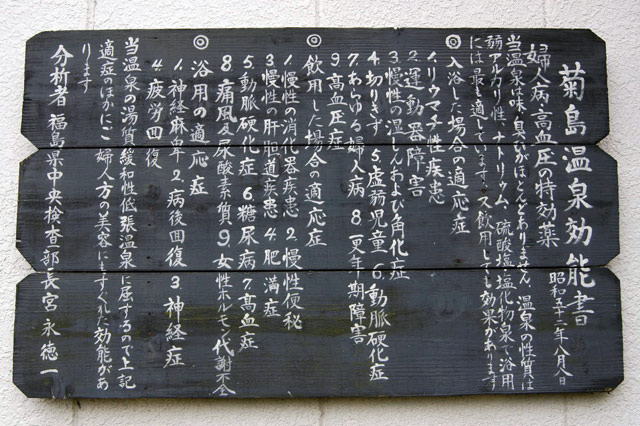 菊島温泉効能書
昭和五十二年八月八日
婦人病・高血圧の特効薬
当温泉は味、臭いがほとんどありません、温泉の性質は
弱アルカリ性ナトリウム、硫酸塩、塩化物泉で浴用
には最も適しています。又飲用しても効果があります
◎入浴した場合の適応症
1.リウマチ性疾患
2.運動器障害
3.慢性の湿しんおよび角化症
4.切りきず 5.虚弱児童 6.動脈硬化症
7.あらゆる婦人病 8.更年期障害
9.高血圧症
◎飲用した場合の適応症
1.慢性の消化器疾患 2.慢性便秘
3.慢性の肝胆道疾患 4.肥満症
5.動脈硬化症 6.糖尿病 7.高血症
8.痛風及尿酸素質 9.女性ホルモン代謝不全
◎浴用の適応症
1.神経麻卑 2.病後回復 3.神経症
4.疲労回復
当温泉の湯質緩和性低張温泉に属するので上記
適応症のほかにご婦人方の美容にもすぐれた効能があ
ります
分析者 福島県中央検査部長宮永徳一